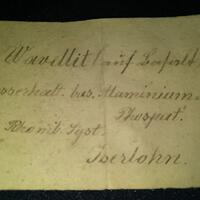 Wavellit auf Basalt.
sserhalt. bas. Aluminium-
Phosphat.
Rhomb. Syst.
Iserlohn.